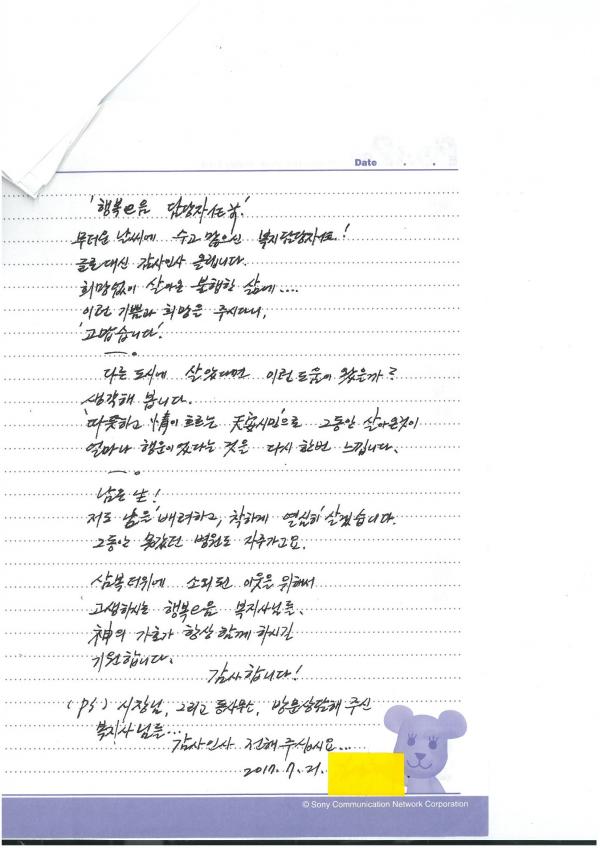 Date . . .
'행복e음 담당자任 前!'
무더운 날씨에 수고 많으신 복지담당자任!
글로 대신 감사인사 올립니다.
희망없이 살아온 불행한 삶에....
이런 기쁨과 희망을 주시다니,
'고맙습니다!'
一。
다른 도시에 살았다면 이런 도움이 왔을까?
생각해 봅니다.
'따뜻하고 情이 흐르는 天安시민'으로 그동안 살아온것이
얼마나 행운이었다는 것을 다시 한번 느낍니다.
一。
남은 生!
저도 남을 '배려하고, 착하게 열심히' 살겠습니다.
그동안 못갔던 병원도 자주가고요.
삼복더위에 소외된 이웃을 위해서
고생하시는 행복e음 복지사님들.
神의 가호가 항상 함께 하시길
기원합니다.
감사합니다!
(ps) 시장님, 그리고 동사무소, 방문상담해 주신
복지사님들...
감사인사 전해 주십시요...
2017. 7. 21.
© Sony Communication Network Corporation